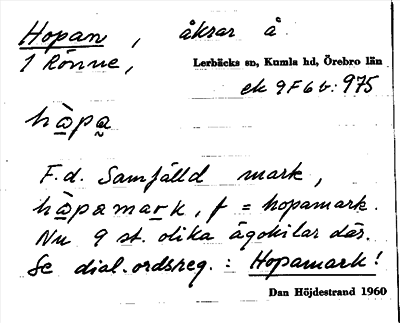 Hopan, åkrar å
1 Rönne,
Lerbäcks sn, Kumla hd, Örebro län
ek 9F6b: 975
hàpa
F.d. Samfälld mark,
hàpamark, f = hopamark.
Nu 9 st. olika ägokilar där.
Se dial.ordsreg.: Hopamark!
Dan Höjdestrand 1960